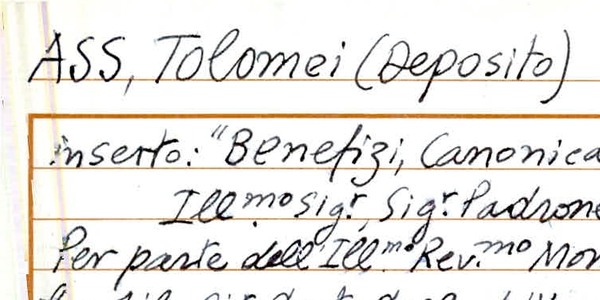 ASS, Tolomei (Deposito)
inserto: "Benefizi, Canonica
Ill.mo Sigr, Sigr. Padrone
Per parte dell'Ill.mo Rev.mo Mon